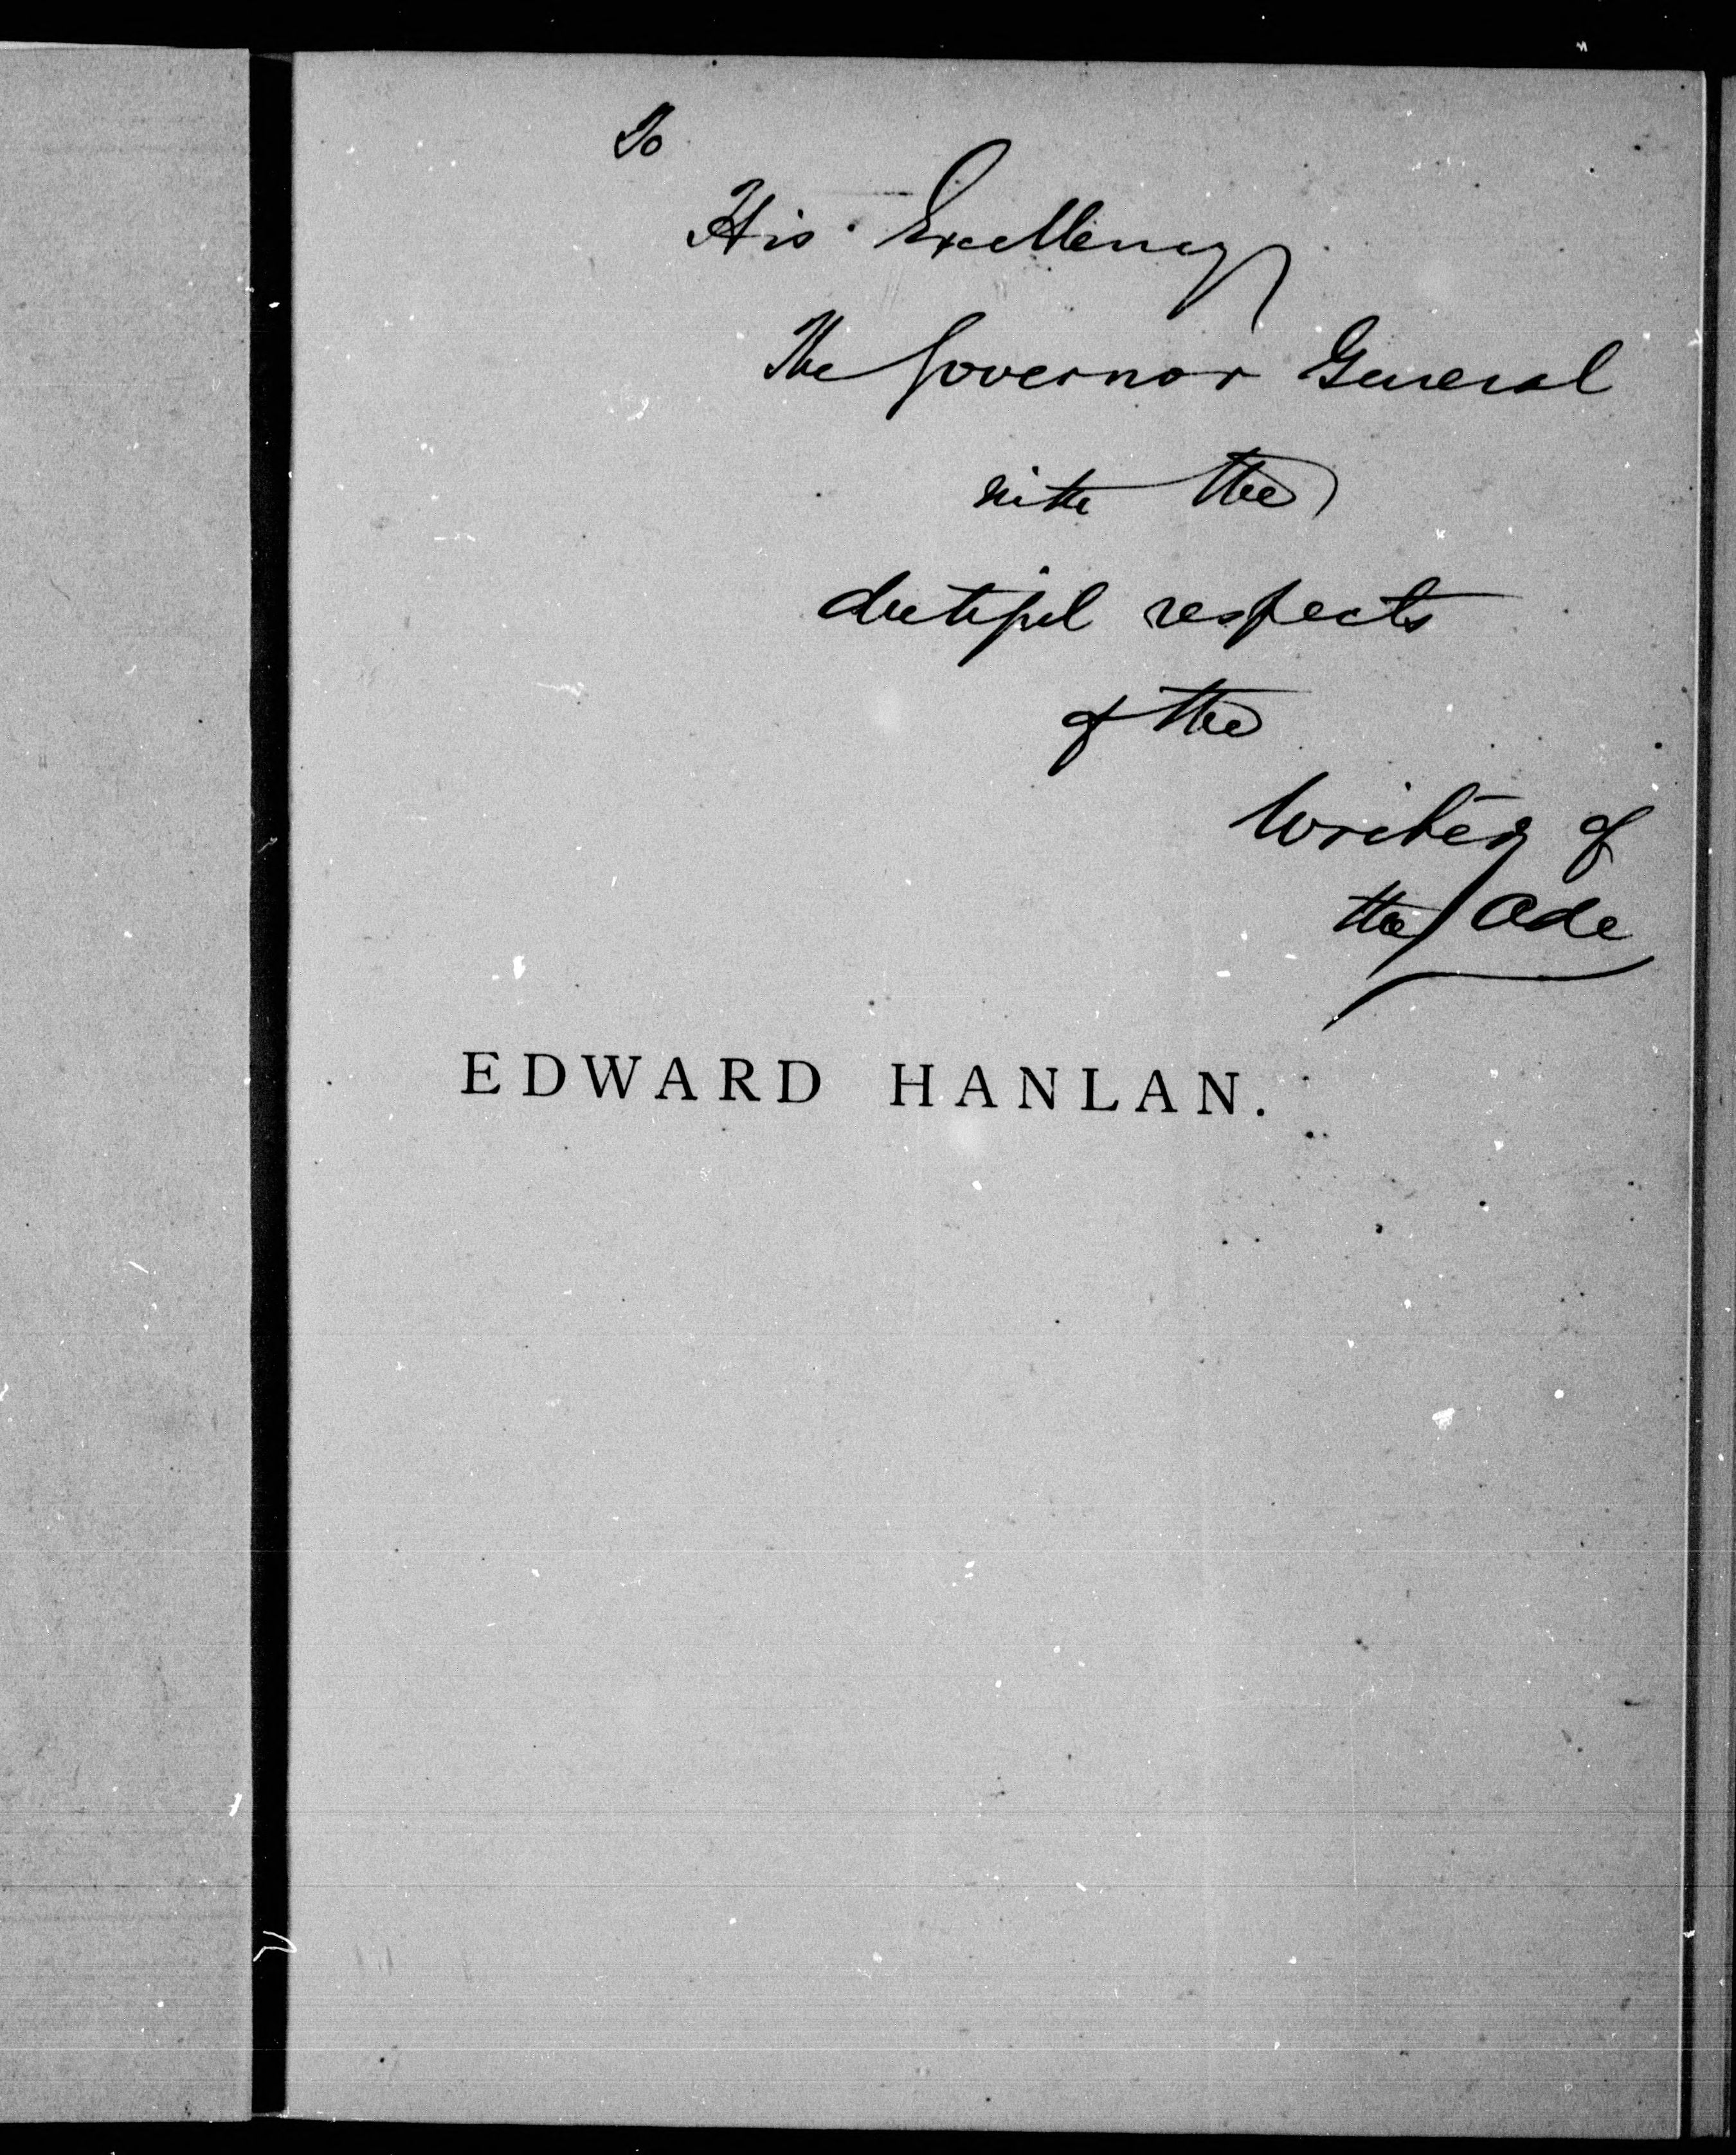 To
His Excellency
The Governor General
with the
dutiful respects
of the
Writer of
the Ode
EDWARD HANLAN.